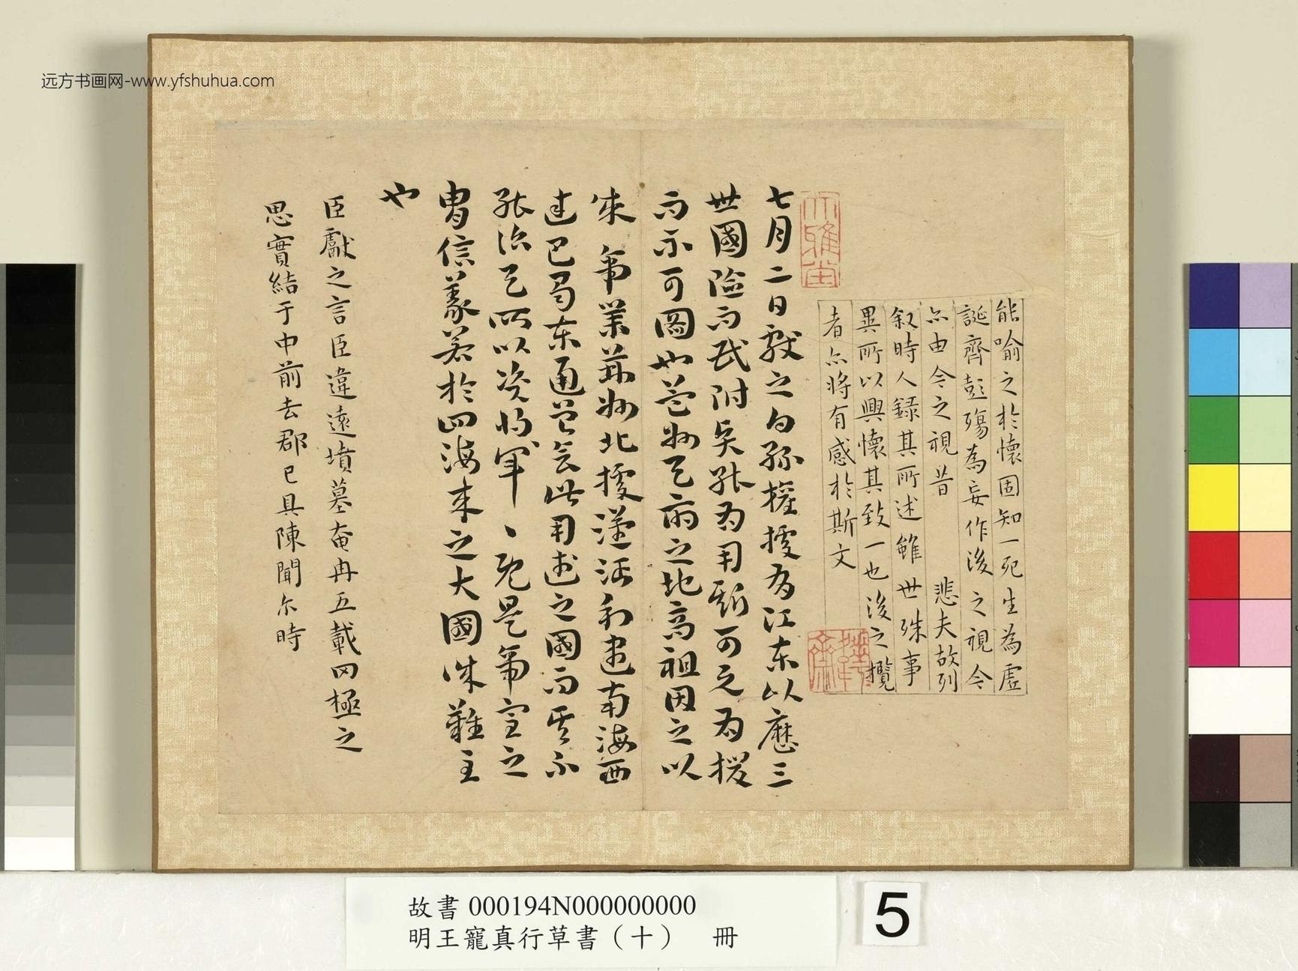 远方书画网-www.yfshuhua.com
能喻之於懷固知一死生為虛
誕齊彭殤為妄作後之視今
亦由今之視昔 悲夫故列
叙時人録其所述雖世殊事
異所以興懷其致一也後之攬
者亦將有感於斯文
大雅堂
七月二日獻之白孫權據有江東以歷三
世國險而民附矣能為用斯可之為援
而不可圖也益州天府之地高祖因之以
成帝業荊州北據漢沔利盡南海西
達巴蜀東通吳會此用武之國而其不
能治天所以資將軍、既是帝室之
胄信義著於四海来之大國誅難主
也
臣獻之言臣違遠墳墓奄冉五載罔極之
思實結于中前去郡已具陳聞尓時
故書 000194N000000000
明王寵真行草書（十） 冊
5